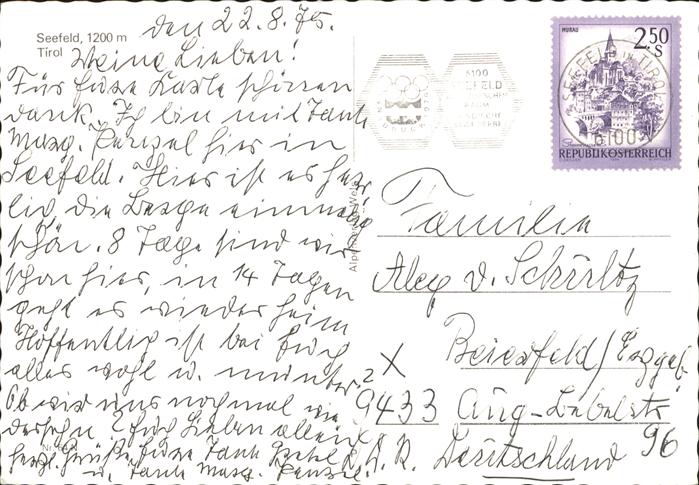 Seefeld, 1200 m
Tirol
den 22.8.75.
Meine Lieben!
Für Eure Karte schönen
Dank. Ich bin mit Tante
Marg. hier in
Seefeld. Hier ist es herr
lich, die Berge einmalig
schön. 8 Tage sind wir
schon hier, in 14 Tagen
geht es wieder heim
Hoffentlich ist bei Euch
alles wohl u. munter.
Ob wir uns nochmal wie
dersehn? Euch Lieben allen
herzl. Grüße Eure Tante
u. Tante Marg.
6100
SEEFELD
MURAU
2.50
S
SEEFELD TIROL
6100
REPUBLIK ÖSTERREICH
Familie
v.
Beierfeld/Erzgeb.
9433 Aug-Bebelstr
96
D.D.R. Deutschland